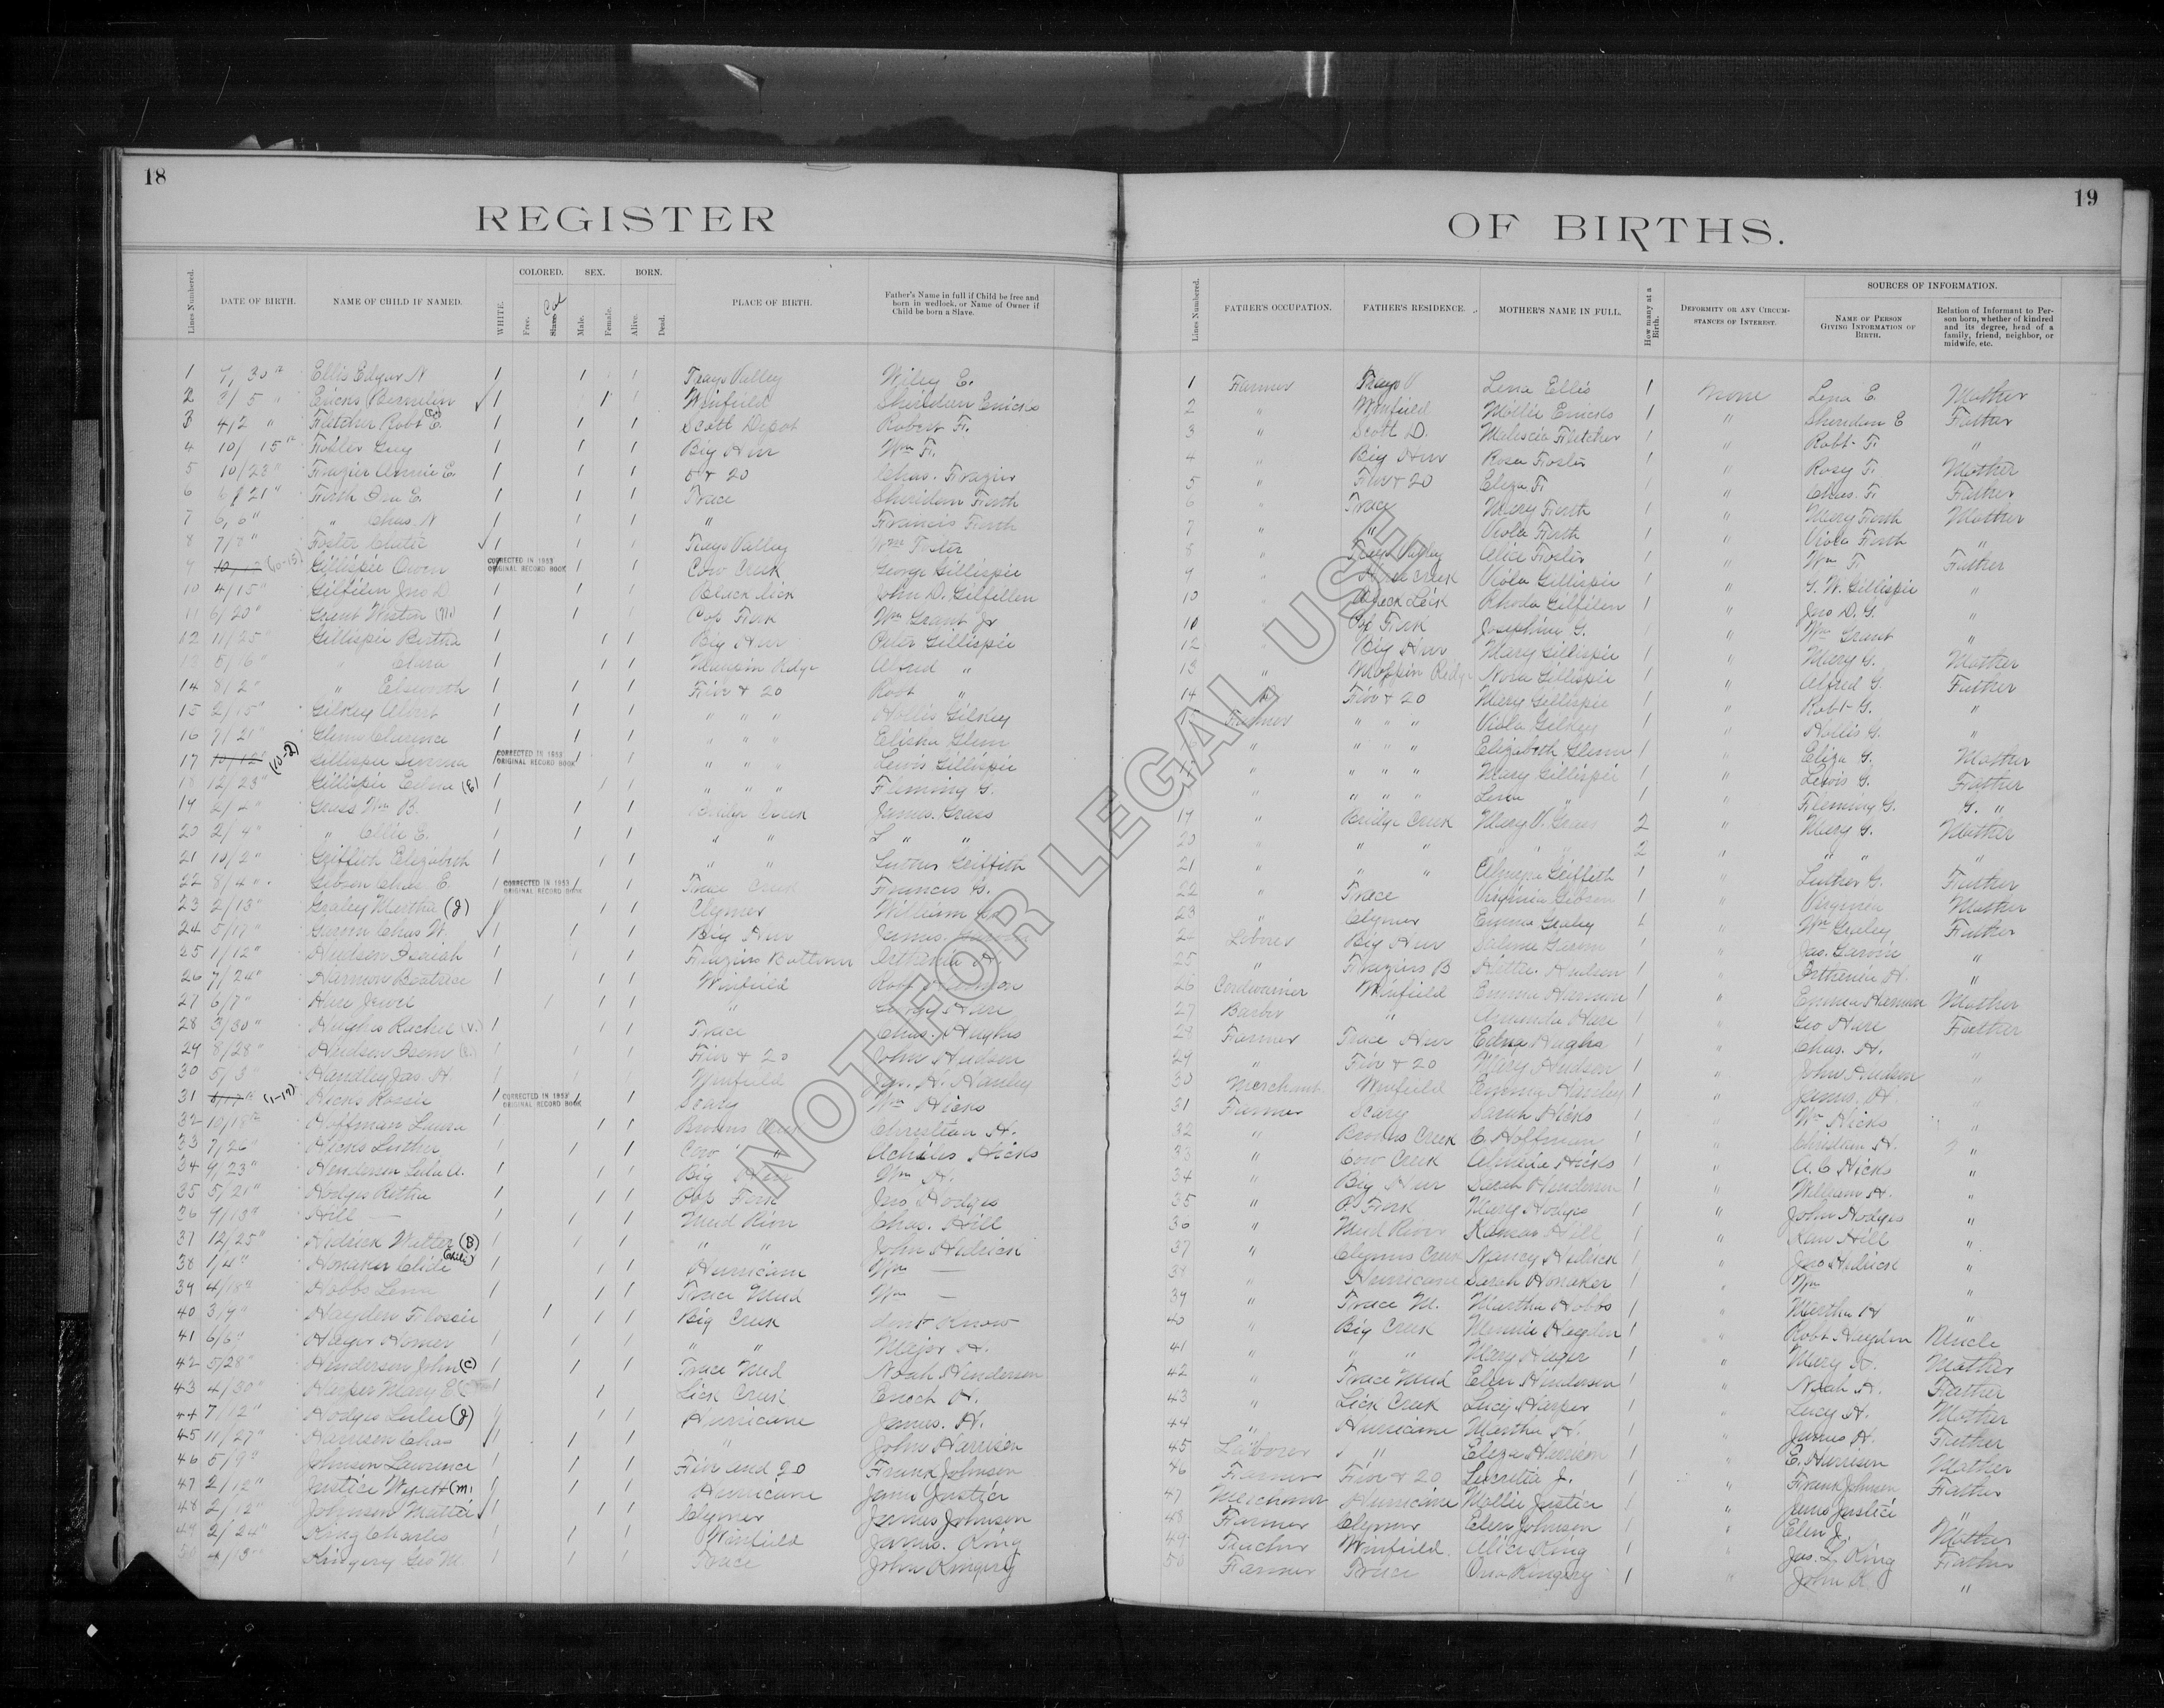 18
REGISTER
Lines Numbered.
DATE OF BIRTH.
NAME OF CHILD IF NAMED.
WHITE.
COLORED.
Free.
Slave. Col
SEX.
Male.
Female.
BORN.
Alive.
Dead.
PLACE OF BIRTH.
Father's Name in full if Child be free and born in wedlock, or Name of Owner if Child be born a Slave.
1 Ellis Edgar N 1 1 1 Trays Valley Wiley E.
2 3/5 " Ericks 1 1 Winfield Sheridan Ericks
3 4/2 " Fletcher Robt E. 1 1 1 Scott Depot Robert F.
4 10/15th Guy 1 1 1 Big Hur Wm F.
5 10/23 " Frazier Annie E. 1 1 1 5 & 20 Chas. Frazier
6 6/21 " Firth E. 1 1 1 Trace Sheridan Firth
7 6/6 " " Chas. N 1 1 1 " Francis Firth
8 7/8 " Foster 1 1 1 Trays Valley Wm Foster
9 (10-15) Gillispie Owen CORRECTED IN 1953 ORIGINAL RECORD BOOK 1 1 Cow Creek George Gillispie
10 4/15 " Gilfilen Jno D. 1 1 1 Black Lick John D. Gilfillen
11 6/20 " Grant 1 1 1 Fork Wm Grant Jr
12 11/25 " Gillispie Bertha 1 1 1 Big Hur Peter Gillispie
" Clara 1 1 1 Maupin Ridge "
14 8/2 " " Elsworth 1 1 1 Five & 20 Robt "
15 2/15 " Gilkey Albert 1 1 1 " " " Hollis Gilkey
16 7/21 " Glenn Clarence 1 1 1 " " " Elisha Glenn
17 10/12 " (10-2) Gillispie CORRECTED IN 1953 ORIGINAL RECORD BOOK 1 1 " " " Lewis Gillispie
18 12/23 " Gillispie Edna (E) 1 1 1 " " " Fleming G.
19 2/4 " Grass Wm B. 1 1 1 Bridge Creek James. Grass
20 2/4 " " Ellie E. 1 1 1 " " " "
21 10/2 " Griffith Elizabeth 1 1 1 " " Luther Griffith
22 8/4 " Gibson Chas E. 1 CORRECTED IN 1953 ORIGINAL RECORD BOOK 1 Trace Creek Francis G.
23 2/13 " Graley Martha (J) 1 1 1 Clymer William G.
24 5/17 " Garvin Chas W. 1 1 1 Big Hur James. Garvin
25 1/12 " Hudson Isaiah 1 1 1 Fraziers Bottom H.
26 7/24 " Harmon Beatrice 1 1 1 Winfield Robt Harmon
27 6/7 " Hare Jewel 1 1 1 " Hare
28 3/30 " Hughs Rachel (V.) 1 1 1 Trace Chas. Hughs
29 8/28 " Hudson 1 1 1 Five & 20 John Hudson
30 5/3 " Handley Jas. H. 1 1 1 Winfield Jas. H. Hanley
31 (1-19) Hicks Rossie CORRECTED IN 1953 ORIGINAL RECORD BOOK 1 1 Scary Wm Hicks
32 10/18th Hoffman Laura 1 1 1 Browns Creek Christian H.
33 7/26 " Hicks Luther 1 1 1 Cow " Achilles Hicks
34 9/23 " Henderson Lula A. 1 1 1 Big Hur Wm H.
35 5/21 " Hodges 1 1 1 Fork Jno Hodges
36 9/13 " Hill — 1 1 1 Mud River Chas. Hill
37 12/25 " Hedrick Walter (B) 1 1 1 " " John Hedrick
38 1/4 " Honaker 1 1 1 Hurricane Wm —
39 4/18 " Hobbs Lena 1 1 1 Trace Mud Wm —
40 3/9 " Hayden Flossie 1 1 1 Big Creek dont Know
41 6/6 " Hager Homer 1 1 1 " " Major H.
42 5/28 " Henderson John (C) 1 1 1 Trace Mud Noah Henderson
43 4/30 " Harper Mary E. 1 1 Lick Creek Enoch H.
44 7/12 " Hodges Lula (J) 1 1 1 Hurricane James. H.
45 11/27 " Harrison Chas 1 1 1 " John Harrison
46 5/9 " Johnson Lawrence 1 1 1 Five and 20 Frank Johnson
47 2/12 " Justice (M) 1 1 1 Hurricane James Justice
48 2/12 " Johnson Mattie 1 1 1 Clymer James Johnson
49 2/24 " King Charles 1 1 1 Winfield James. King
50 4/13 " Kingery Geo M. 1 1 1 Trace John Kingery
19
OF BIRTHS.
Lines Numbered.
FATHER'S OCCUPATION.
FATHER'S RESIDENCE.
MOTHER'S NAME IN FULL.
How many at a Birth.
DEFORMITY OR ANY CIRCUMSTANCES OF INTEREST.
SOURCES OF INFORMATION.
NAME OF PERSON GIVING INFORMATION OF BIRTH.
Relation of Informant to Person born, whether of kindred and its degree, head of a family, friend, neighbor, or midwife, etc.
1 Farmer Trays V. Lena Ellis 1 None Lena E. Mother
2 " Winfield Mollie Ericks 1 " Sheridan E Father
3 " Scott D. Fletcher 1 " Robt F. "
4 " Big Hur Rosa Foster 1 " Rosy F. Mother
5 " Five & 20 Eliza F. 1 " Chas. F. Father
6 " Trace Mary Firth 1 " Mary Firth Mother
7 " " Viola Firth 1 " Viola Firth "
8 " Trays Valley Alice Foster 1 " Wm F. Father
9 " Creek Viola Gillispie 1 " G. W. Gillispie "
10 " Black Lick Rhoda Gilfilen 1 " Jno D. G. "
10 Fork Josephine G. " Wm Grant "
12 " Big Hur Mary Gillispie 1 " Mary G. Mother
13 " Ridge Nora Gillispie 1 " Alfred G. Father
14 Five & 20 Mary Gillispie 1 " Robt G. "
Farmer " " " Viola Gilkey 1 " Hollis G. "
" " " " Elizabeth Glenn 1 " Eliza G. Mother
" " " " Mary Gillispie 1 " Lewis G. Father
" " " " Lena " 1 " Fleming G. "
19 " Bridge Creek Mary V. Grass 2 " Mary G. Mother
20 " " " " 2 " " " "
21 " " " Griffith 1 " Luther G. Father
22 " Trace Virginia Gibson 1 " Virginia Mother
23 " Clymer Emma Graley 1 " Wm Graley Father
24 Laborer Big Hur Garvin 1 " Jas. Garvin "
25 " Fraziers B Hudson 1 " H. "
26 Cordwainer Winfield Emma Harmon 1 " Emma Harmon Mother
27 Barber " Amanda Hare 1 " Geo Hare Father
28 Farmer Trace Hur Edna Hughs 1 " Chas. H. "
29 " Five & 20 Mary Hudson 1 " John Hudson "
30 Merchant Winfield Emma Handley 1 " James. H "
31 Farmer Scary Sarah Hicks 1 " Wm Hicks "
32 " Browns Creek C. Hoffman 1 " Christian H. "
33 " Cow Creek Hicks 1 " A. C Hicks "
34 " Big Hur Sarah Henderson 1 " William H. "
35 " P. Fork Mary Hodges 1 " John Hodges "
36 " Mud River Hill 1 " Hill "
37 " Clymers Creek Nancy Hedrick 1 " Jno Hedrick "
" Hurricane Sarah Honaker 1 " Wm "
39 " Trace M. Martha Hobbs 1 " Martha H "
40 " Big Creek Minnie Hayden 1 " Robt Hayden Uncle
41 " " " Mary Hager 1 " Mary H. Mother
42 " Trace Mud Elen Henderson 1 " Noah H. Father
43 " Lick Creek Lucy Harper 1 " Lucy H. Mother
44 " Hurricane Martha H. 1 " James H. Father
45 Laborer " Eliza Harrison 1 " E. Harrison Mother
46 Farmer Five & 20 Lucretia J. 1 " Frank Johnson Father
47 Merchant Hurricane Mollie Justice 1 " James Justice "
48 Farmer Clymer Elen Johnson 1 " Elen J. Mother
49 Teacher Winfield. Alice King 1 " Jas. L. King Father
50 Farmer Trace Kingery 1 " John K. "
NOT FOR LEGAL USE